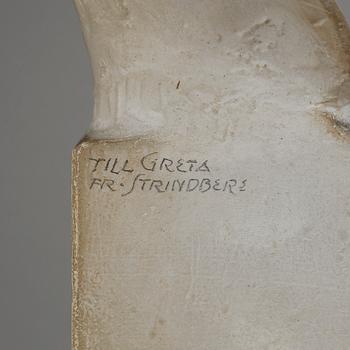 TILL GRETA
FR. STRINDBERG